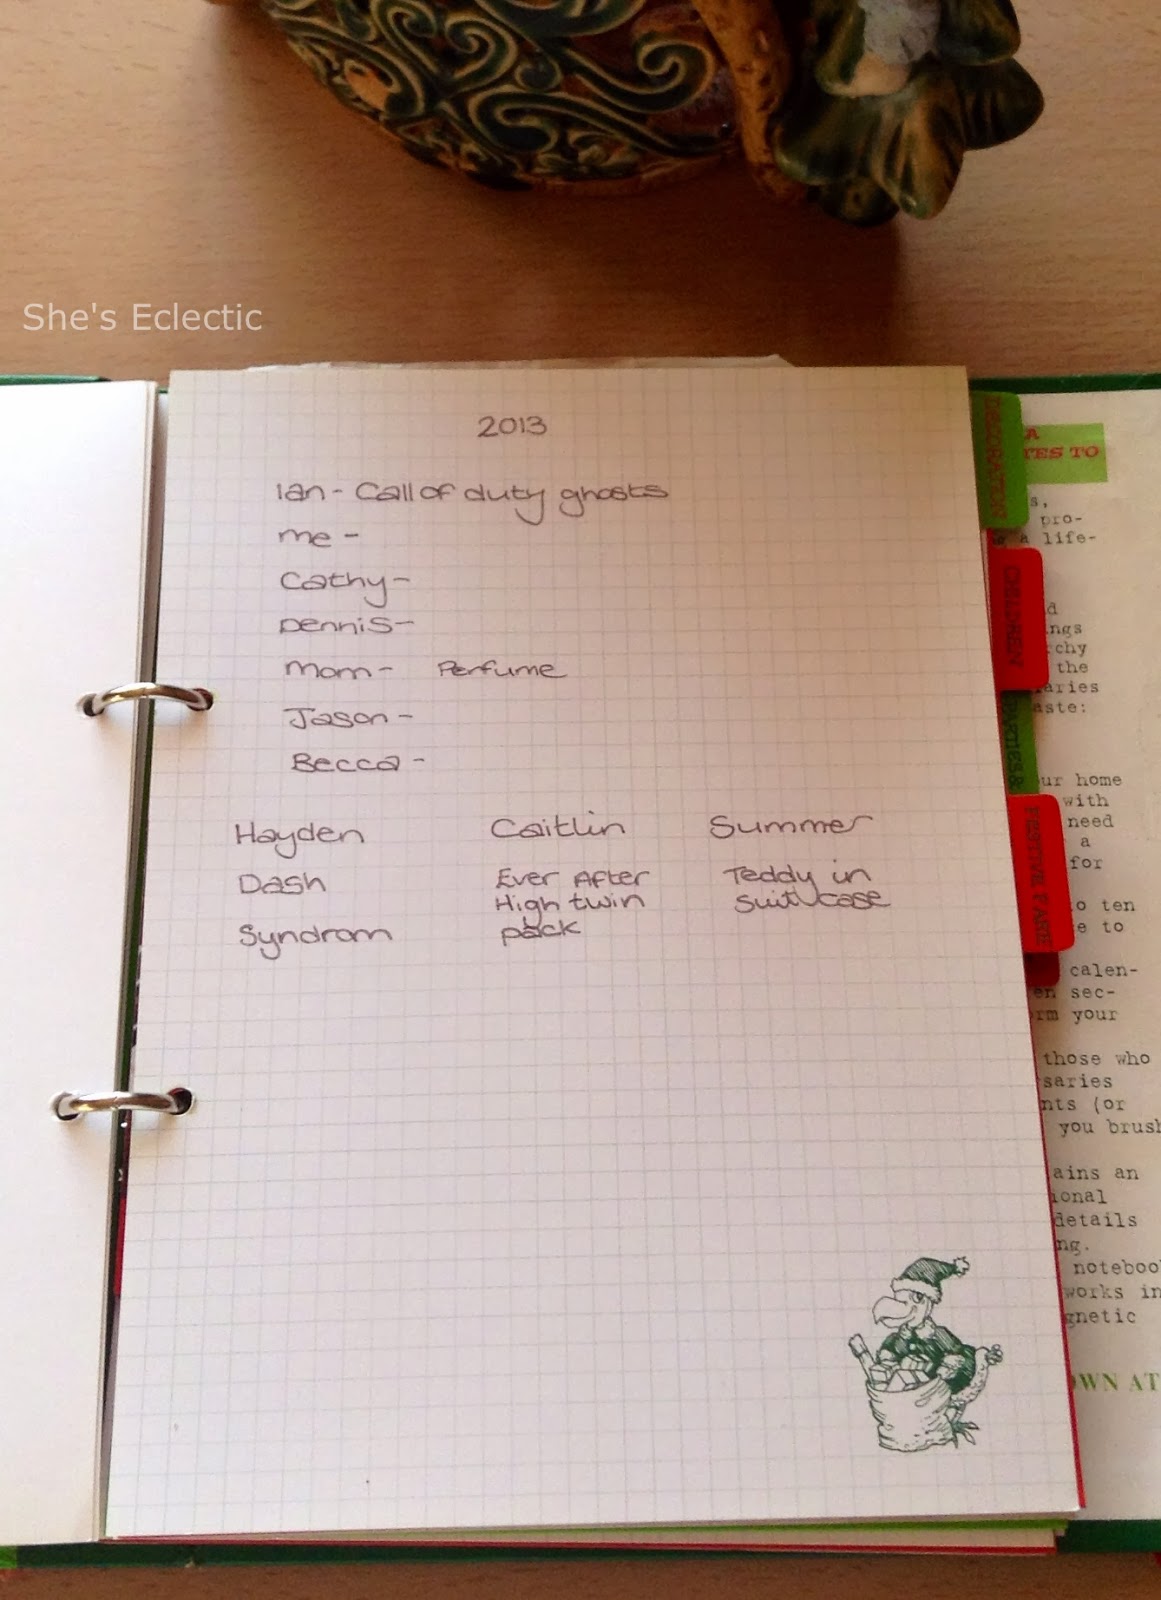 She's Eclectic
2013
Ian - Call of duty ghosts
me -
Cathy -
Dennis -
Mom - Perfume
Jason -
Becca -
Hayden
Dash
Syndrom
Caitlin
Ever After
High twin
pack
Summer
Teddy in
Suitcase
DECORATION
CHILDREN
PARTIES &
FESTIVE FARE
A
TES TO
s,
pro-
a life-
d
ngs
rchy
the
aries
aste:
ur home
with
need
a
for
o ten
e to
calen-
en sec-
rm your
those who
saries
nts (or
you brush
ains an
ional
details
ng.
notebook
works in
gnetic
OWN AT